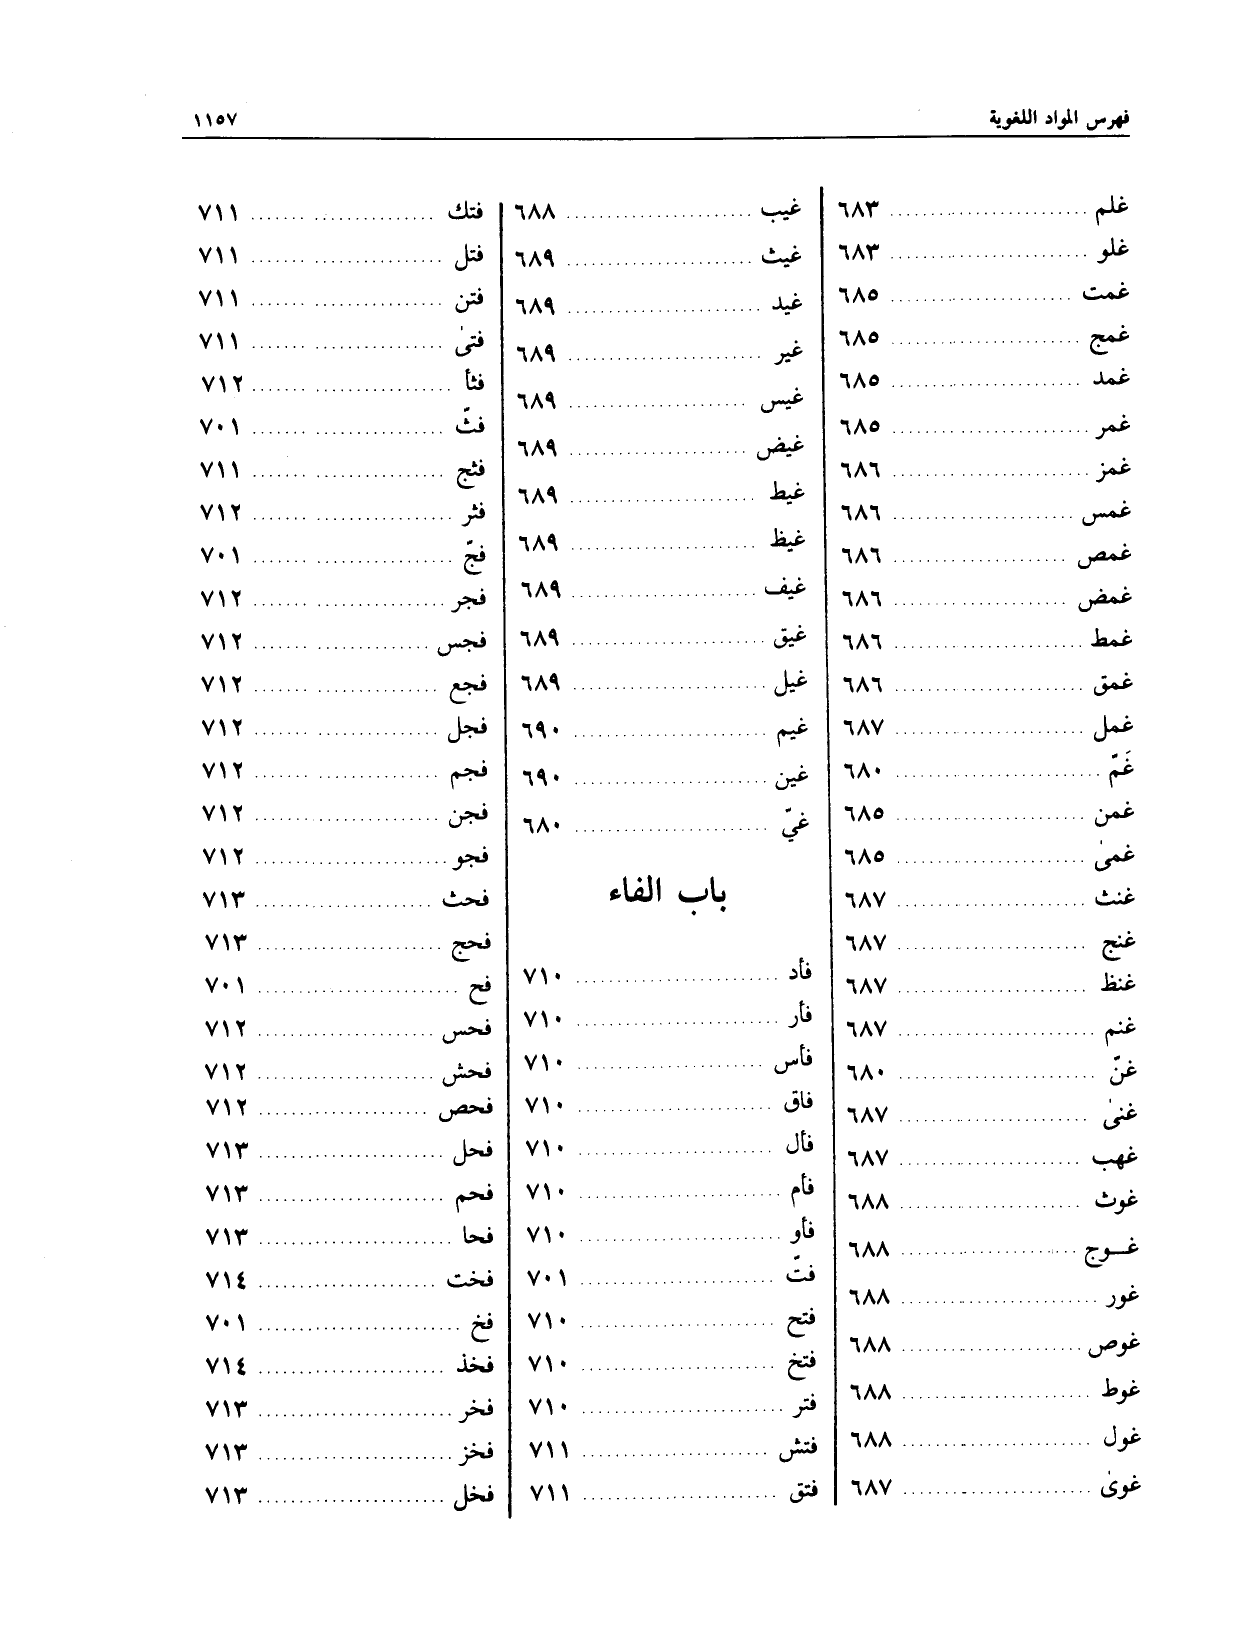 فهرس المواد اللغوية ١١٥٧
غلم ٦٨٣
غلو ٦٨٣
غمت ٦٨٥
غمج ٦٨٥
غمد ٦٨٥
غمر ٦٨٥
غمز ٦٨٦
غمس ٦٨٦
غمص ٦٨٦
غمض ٦٨٦
غمط ٦٨٦
غمق ٦٨٦
غمل ٦٨٧
غَمّ ٦٨٠
غمن ٦٨٥
غمىٰ ٦٨٥
غنث ٦٨٧
غنج ٦٨٧
غنظ ٦٨٧
غنم ٦٨٧
غنّ ٦٨٠
غنىٰ ٦٨٧
غهب ٦٨٧
غوث ٦٨٨
غـوج ٦٨٨
غور ٦٨٨
غوص ٦٨٨
غوط ٦٨٨
غول ٦٨٨
غوىٰ ٦٨٧
غيب ٦٨٨
غيث ٦٨٩
غيد ٦٨٩
غير ٦٨٩
غيس ٦٨٩
غيض ٦٨٩
غيط ٦٨٩
غيظ ٦٨٩
غيف ٦٨٩
غيق ٦٨٩
غيل ٦٨٩
غيم ٦٩٠
غين ٦٩٠
غيّ ٦٨٠
باب الفاء
فأد ٧١٠
فأر ٧١٠
فأس ٧١٠
فاق ٧١٠
فأل ٧١٠
فأم ٧١٠
فأو ٧١٠
فتّ ٧٠١
فتح ٧١٠
فتخ ٧١٠
فتر ٧١٠
فتش ٧١١
فتق ٧١١
فتك ٧١١
فتل ٧١١
فتن ٧١١
فتىٰ ٧١١
فثأ ٧١٢
فثّ ٧٠١
فثج ٧١١
فثر ٧١٢
فجّ ٧٠١
فجر ٧١٢
فجس ٧١٢
فجع ٧١٢
فجل ٧١٢
فجم ٧١٢
فجن ٧١٢
فجو ٧١٢
فحث ٧١٣
فحج ٧١٣
فح ٧٠١
فحس ٧١٢
فحش ٧١٢
فحص ٧١٢
فحل ٧١٣
فحم ٧١٣
فحا ٧١٣
فخت ٧١٤
فخ ٧٠١
فخذ ٧١٤
فخر ٧١٣
فخز ٧١٣
فخل ٧١٣